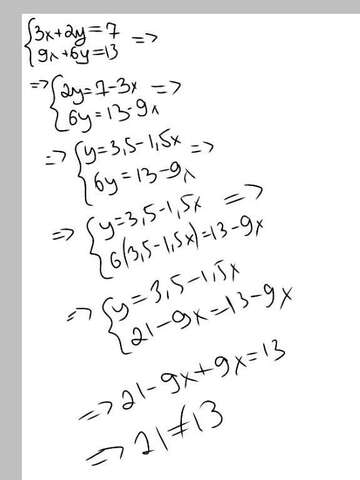 {3x+2y=7
{9x+6y=13 =>
=> {2y=7-3x =>
{6y=13-9x
=> {y=3,5-1,5x =>
{6y=13-9x
=> {y=3,5-1,5x =>
{6(3,5-1,5x)=13-9x
=> {y=3,5-1,5x
{21-9x=13-9x
=> 21-9x+9x=13
=> 21≠13